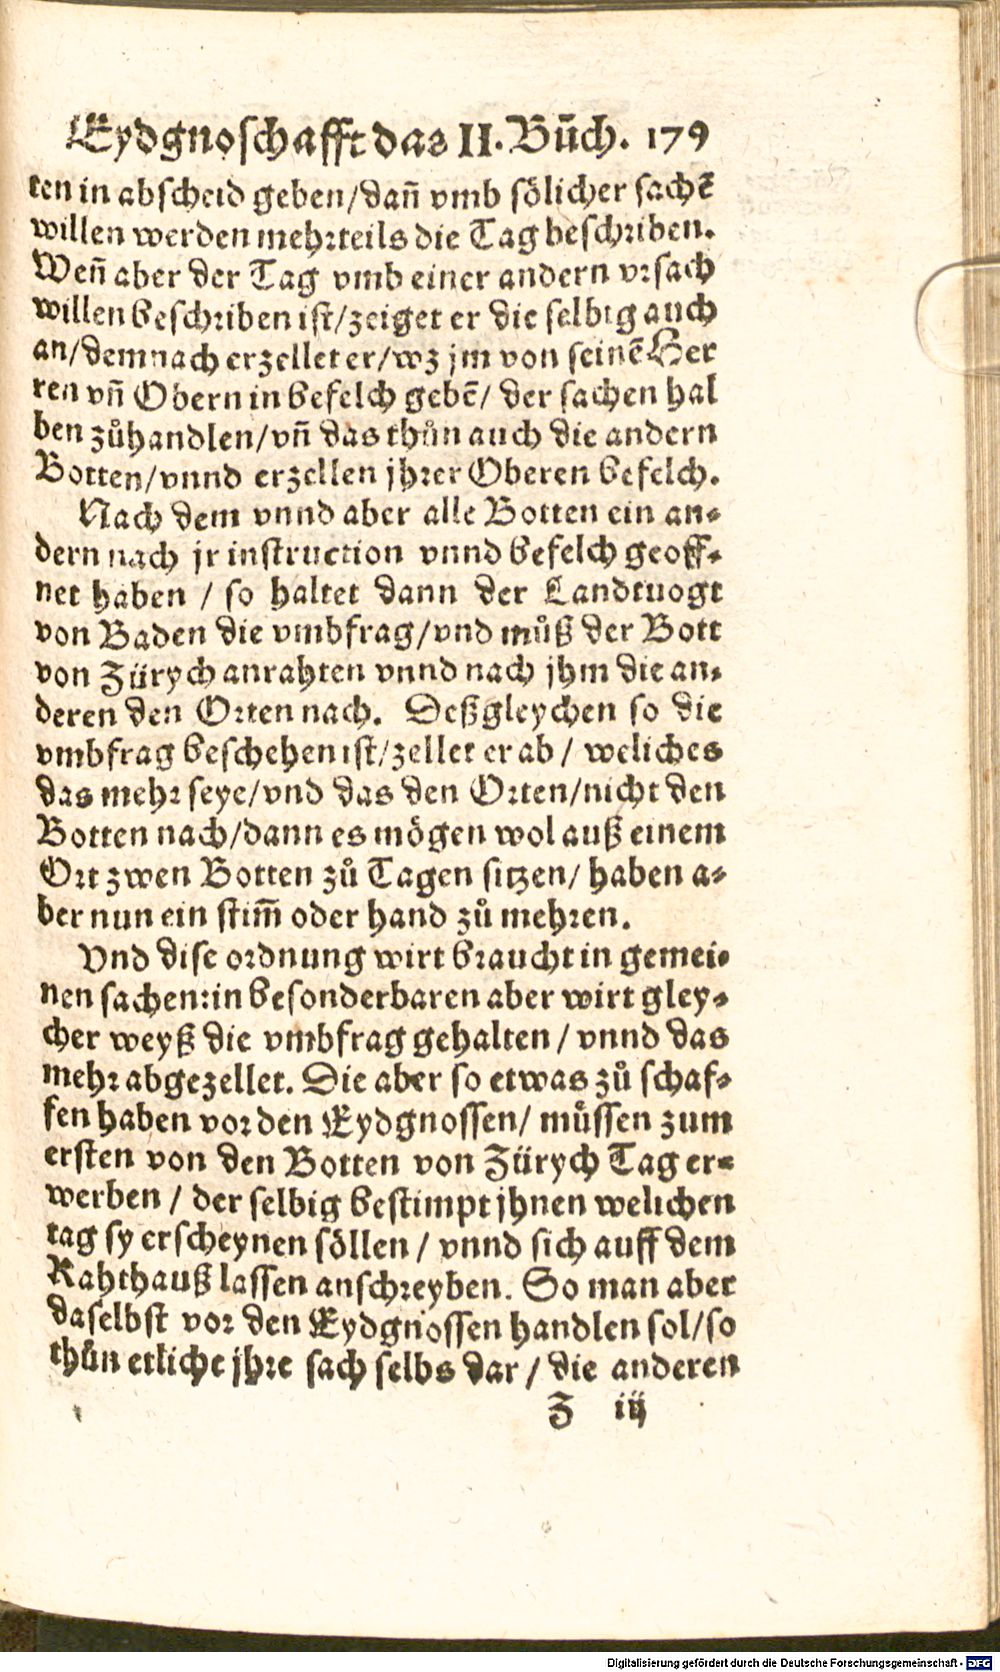 Eydgnoschafft das II. Bůch. 179
ten in abscheid geben/dañ vmb sölicher sachẽ
willen werden mehrteils die Tag beschriben.
Weñ aber der Tag vmb einer andern vrsach
willen beschriben ist/zeiget er die selbig auch
an/demnach erzellet er/wz jm von seinẽ Her
ren vñ Obern in befelch gebẽ/ der sachen hal
ben zůhandlen/vñ das thůn auch die andern
Botten/vnnd erzellen jhrer Oberen befelch.
Nach dem vnnd aber alle Botten ein an-
dern nach jr instruction vnnd befelch geoff-
net haben / so haltet dann der Landtuogt
von Baden die vmbfrag/vnd můß der Bott
von Zürych anrahten vnnd nach jhm die an-
deren den Orten nach. Deßgleychen so die
vmbfrag beschehen ist/zellet er ab / weliches
das mehr seye/vnd das den Orten/nicht den
Botten nach/dann es mögen wol auß einem
Ort zwen Botten zů Tagen sitzen/ haben a-
ber nun ein stim̄ oder hand zů mehren.
Vnd dise ordnung wirt braucht in gemei-
nen sachen:in besonderbaren aber wirt gley-
cher weyß die vmbfrag gehalten / vnnd das
mehr abgezellet. Die aber so etwas zů schaf-
fen haben vor den Eydgnossen/ müssen zum
ersten von den Botten von Zürych Tag er-
werben / der selbig bestimpt jhnen welichen
tag sy erscheynen söllen / vnnd sich auff dem
Rahthauß lassen anschreyben. So man aber
daselbst vor den Eydgnossen handlen sol/so
thůn etliche jhre sach selbs dar / die anderen
Z iij
Digitalisierung gefördert durch die Deutsche Forschungsgemeinschaft - DFG